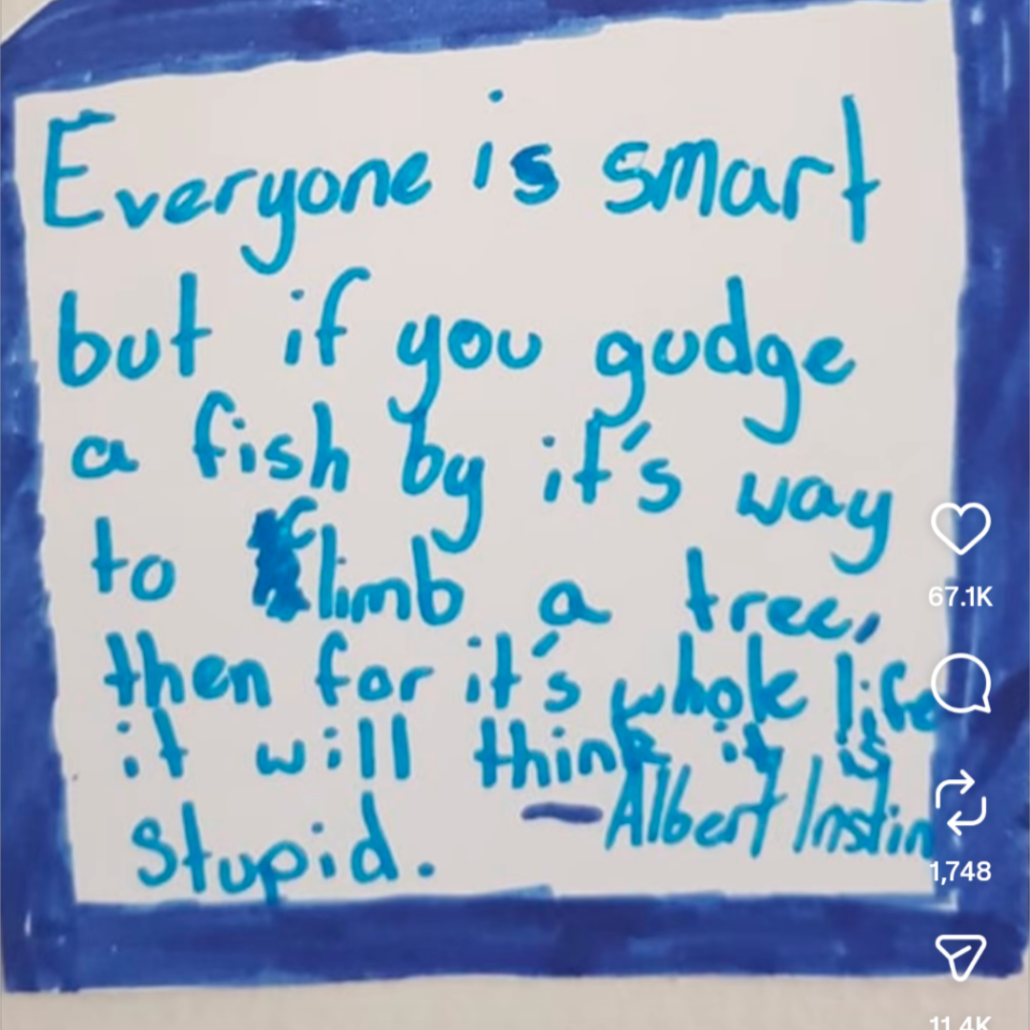 Everyone is smart
but if you gudge
a fish by it's way
to climb a tree,
then for it's whole life
it will think it is
stupid.
—Albert Instin
67.1K
1,748
11.4K